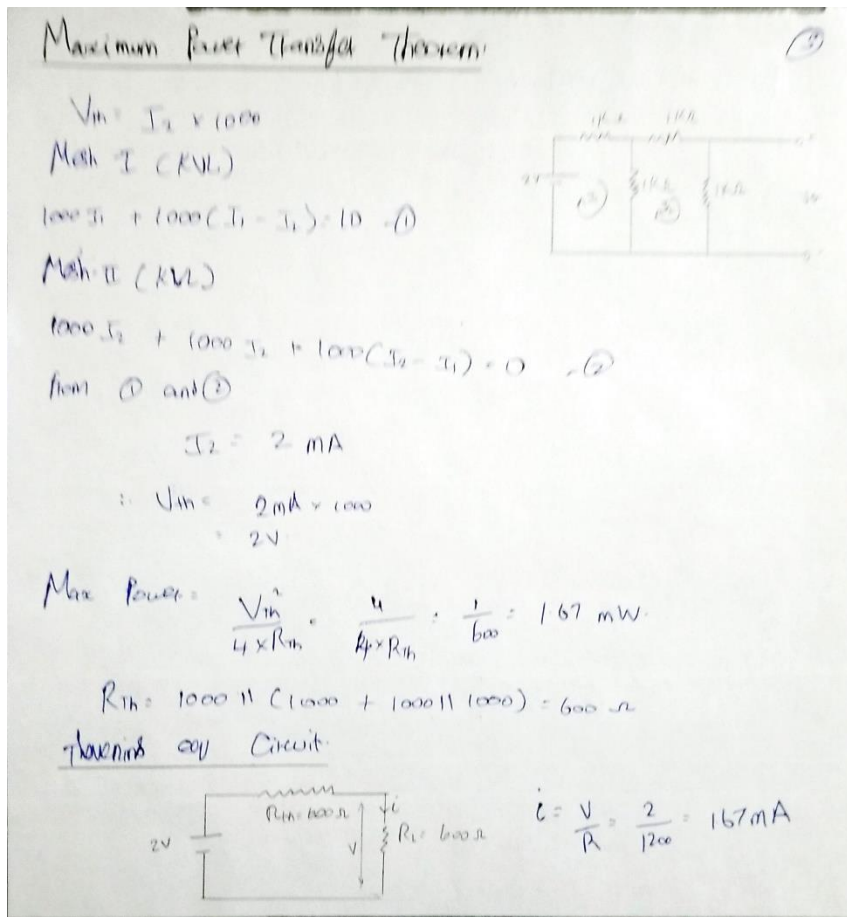 Maximum Power Transfer Theorem:
3
Vth = I2 x 1000
Mesh I (KVL)
1000 I1 + 1000 (I1 - I2) = 10 - ①
Mesh II (KVL)
1000 I2 + 1000 I2 + 1000 (I2 - I1) = 0 - ②
from ① and ②
I2 = 2 mA
∴ Vth = 2mA x 1000
= 2V
Max Power = Vth² / 4 x Rth = 4 / 4 x Rth = 1 / 600 = 1.67 mW.
Rth = 1000 || (1000 + 1000 || 1000) = 600 Ω
Thevenins eqv Circuit.
1KΩ 1KΩ
1KΩ 1KΩ
2V
Rth = 600Ω
i
V
RL = 600Ω
i = V / R = 2 / 1200 = 167mA